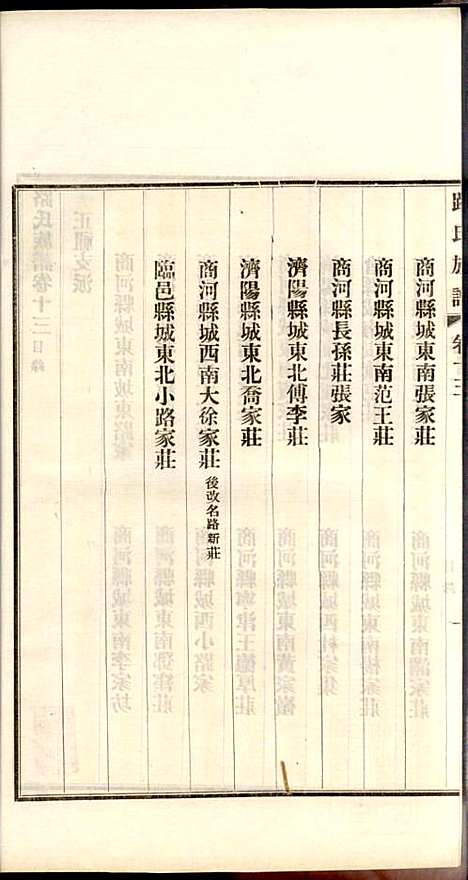 路氏族譜 卷十三
商河縣城東南張家莊
商河縣城東南范王莊
商河縣長孫莊張家
濟陽縣城東北傅李莊
濟陽縣城東北喬家莊
商河縣城西南大徐家莊 後改名路新莊
臨邑縣城東北小路家莊